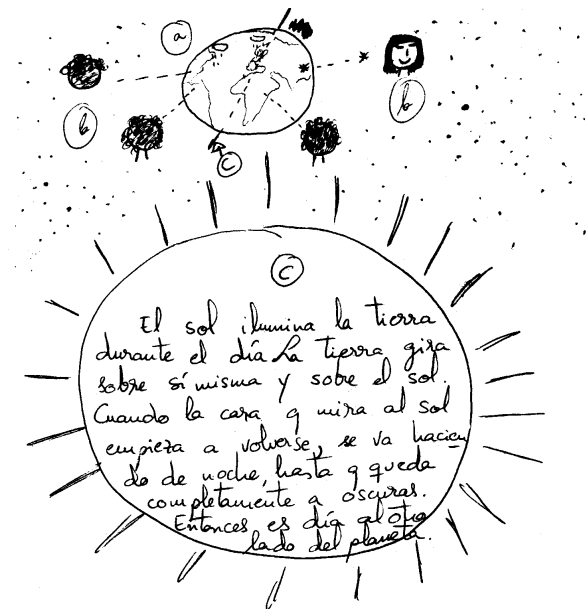 a
b
b
c
c
El sol ilumina la tierra
durante el día La tierra gira
sobre sí misma y sobre el sol.
Cuando la cara q mira al Sol
empieza a volverse, se va hacien
do de noche, hasta q queda
completamente a oscuras.
Entonces es día al otro
lado del planeta.